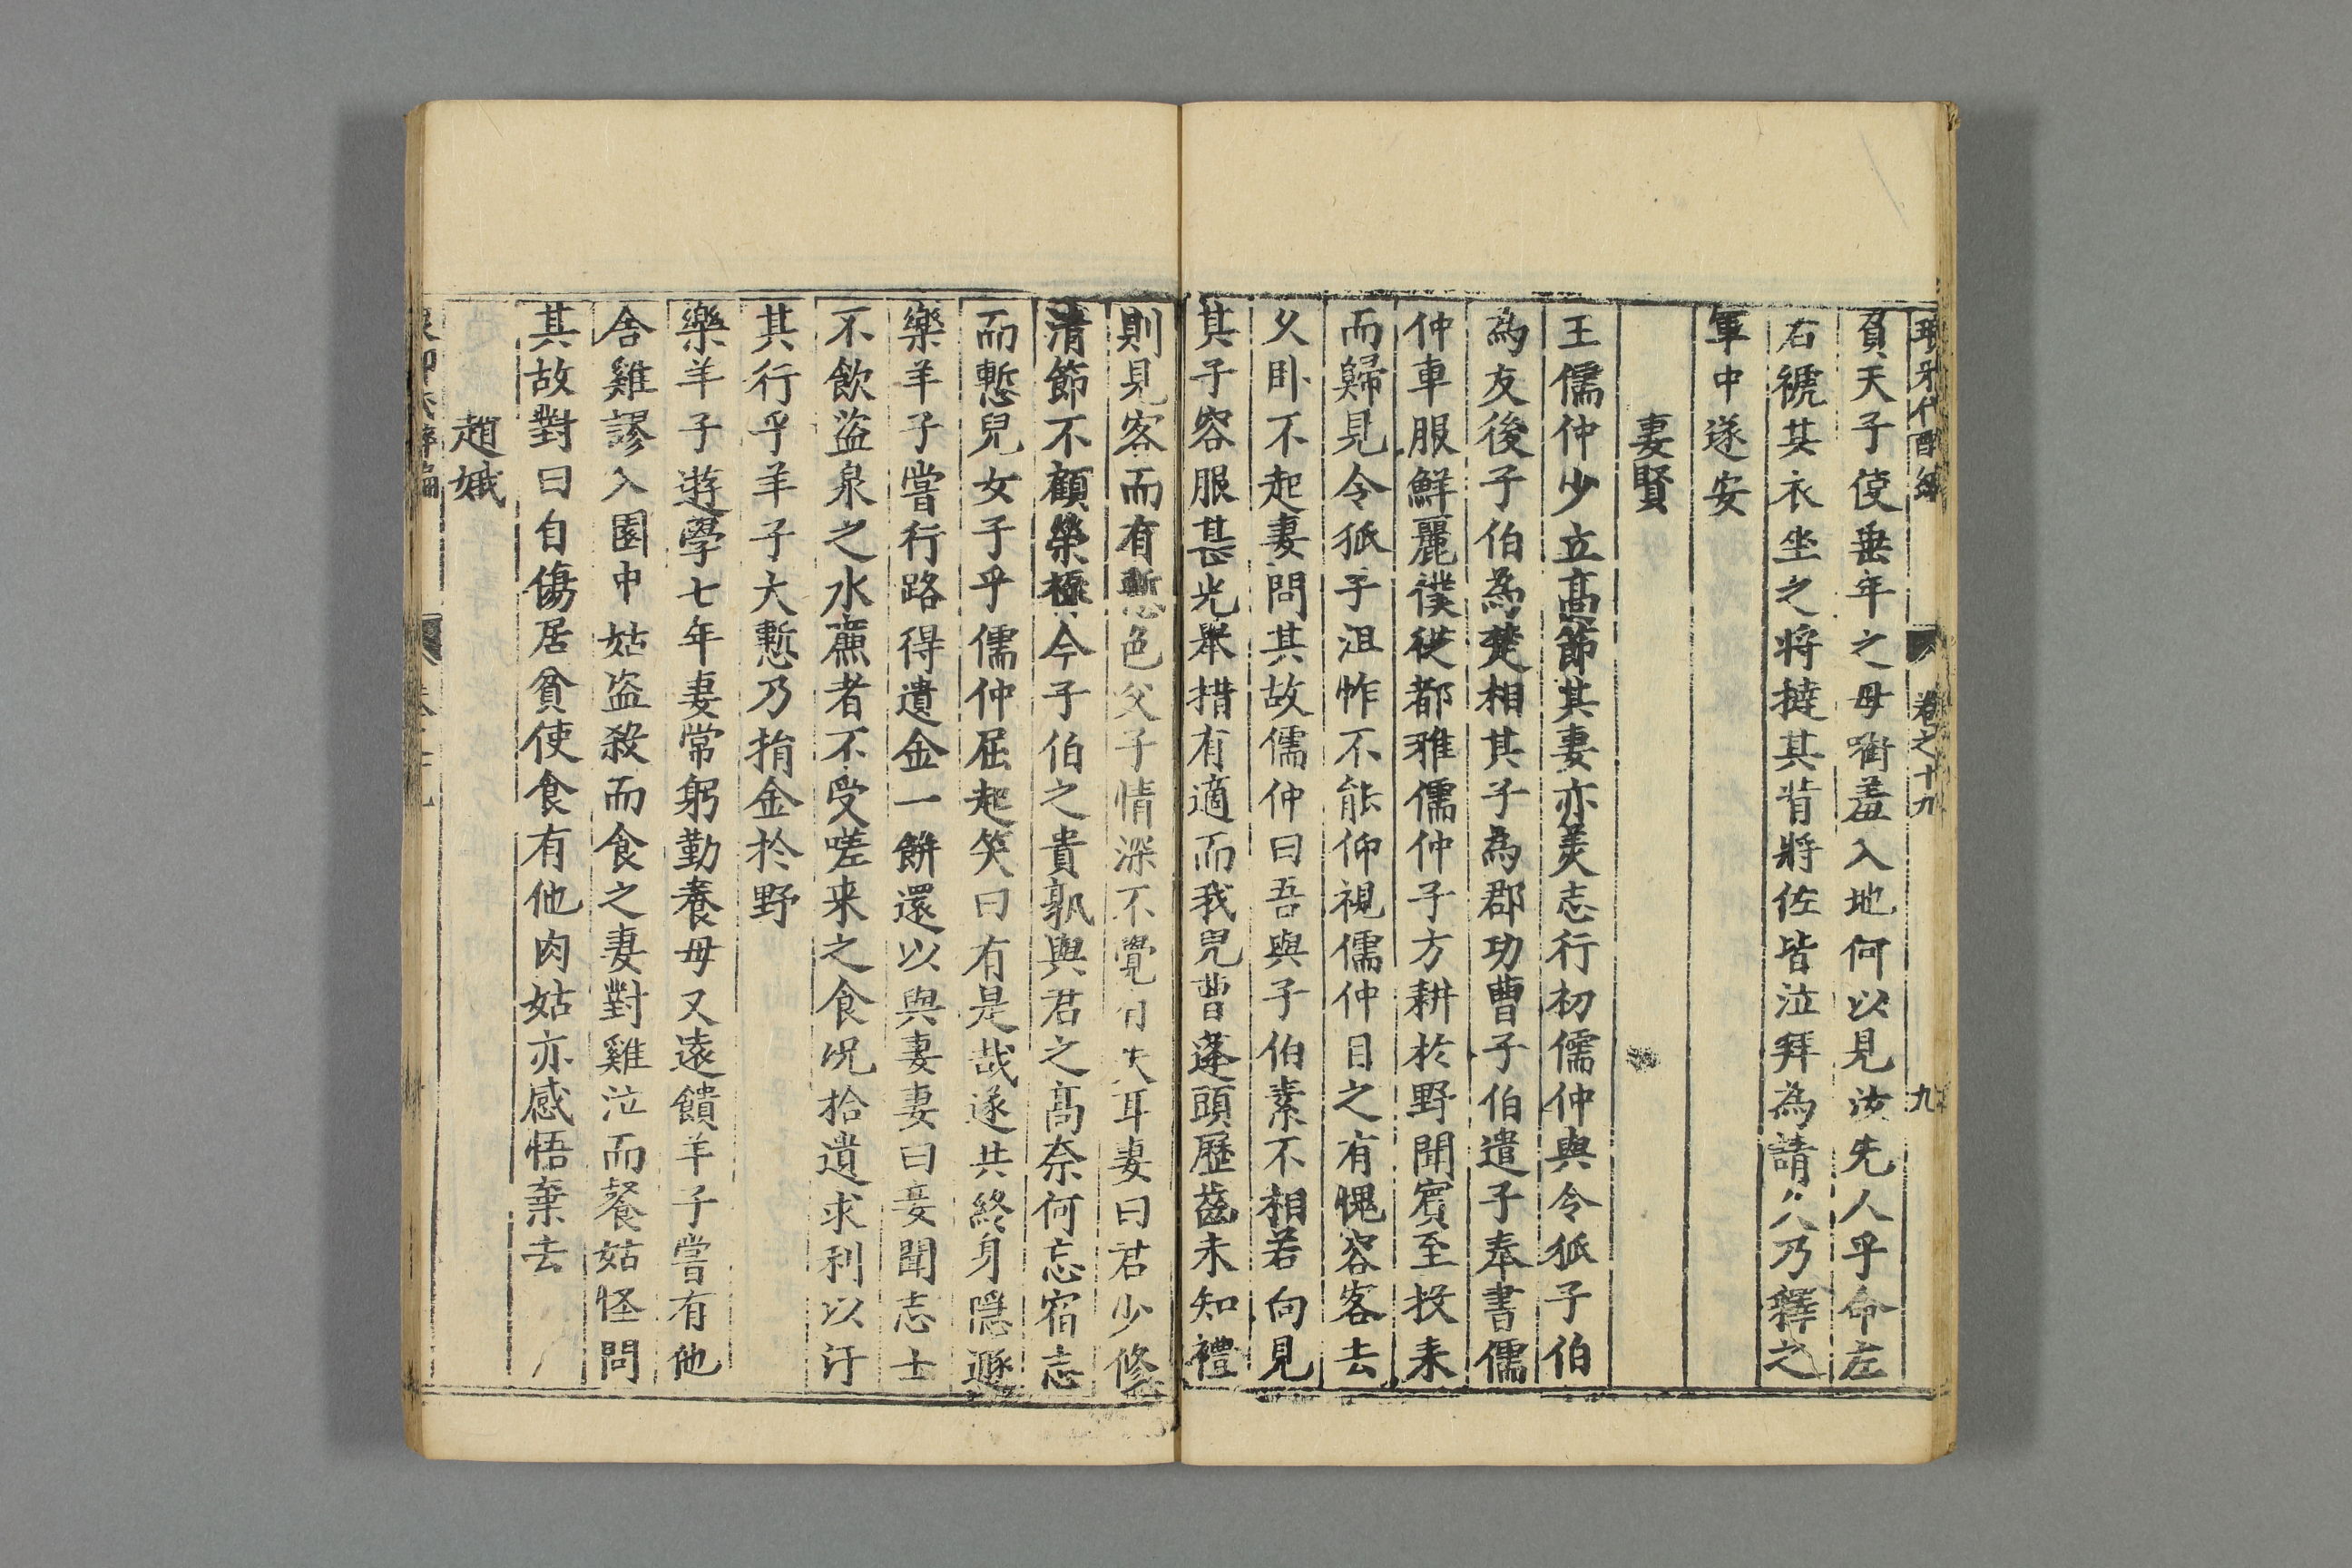 琅牙代醉編 卷之十九 九
負天子使垂年之母銜羞入地何以見汝先人乎命左
右褫其衣坐之將撻其背將佐皆泣拜為請久乃釋之
軍中遂安
妻賢
王儒仲少立高節其妻亦美志行初儒仲與令狐子伯
為友後子伯為楚相其子為郡功曹子伯遣子奉書儒
仲車服鮮麗僕從都雅儒仲子方耕於野聞賓至投耒
而歸見令狐子沮怍不能仰視儒仲目之有愧容客去
久臥不起妻問其故儒仲曰吾與子伯素不相若向見
其子容服甚光舉措有適而我兒曹蓬頭歷齒未知禮
則見客而有慙色父子情深不覺自失耳妻曰君少修
清節不顧榮極今子伯之貴孰與君之高奈何忘宿志
而慙兒女子乎儒仲屈起笑曰有是哉遂共終身隱遯
樂羊子嘗行路得遺金一餅還以與妻妻曰妾聞志士
不飲盜泉之水廉者不受嗟来之食况拾遺求利以汙
其行乎羊子大慙乃捐金於野
樂羊子遊學七年妻常躬勤養母又遠饋羊子嘗有他
舍雞謬入園中姑盗殺而食之妻對雞泣而餐姑怪問
其故對曰自傷居貧使食有他肉姑亦感悟棄去
趙娥